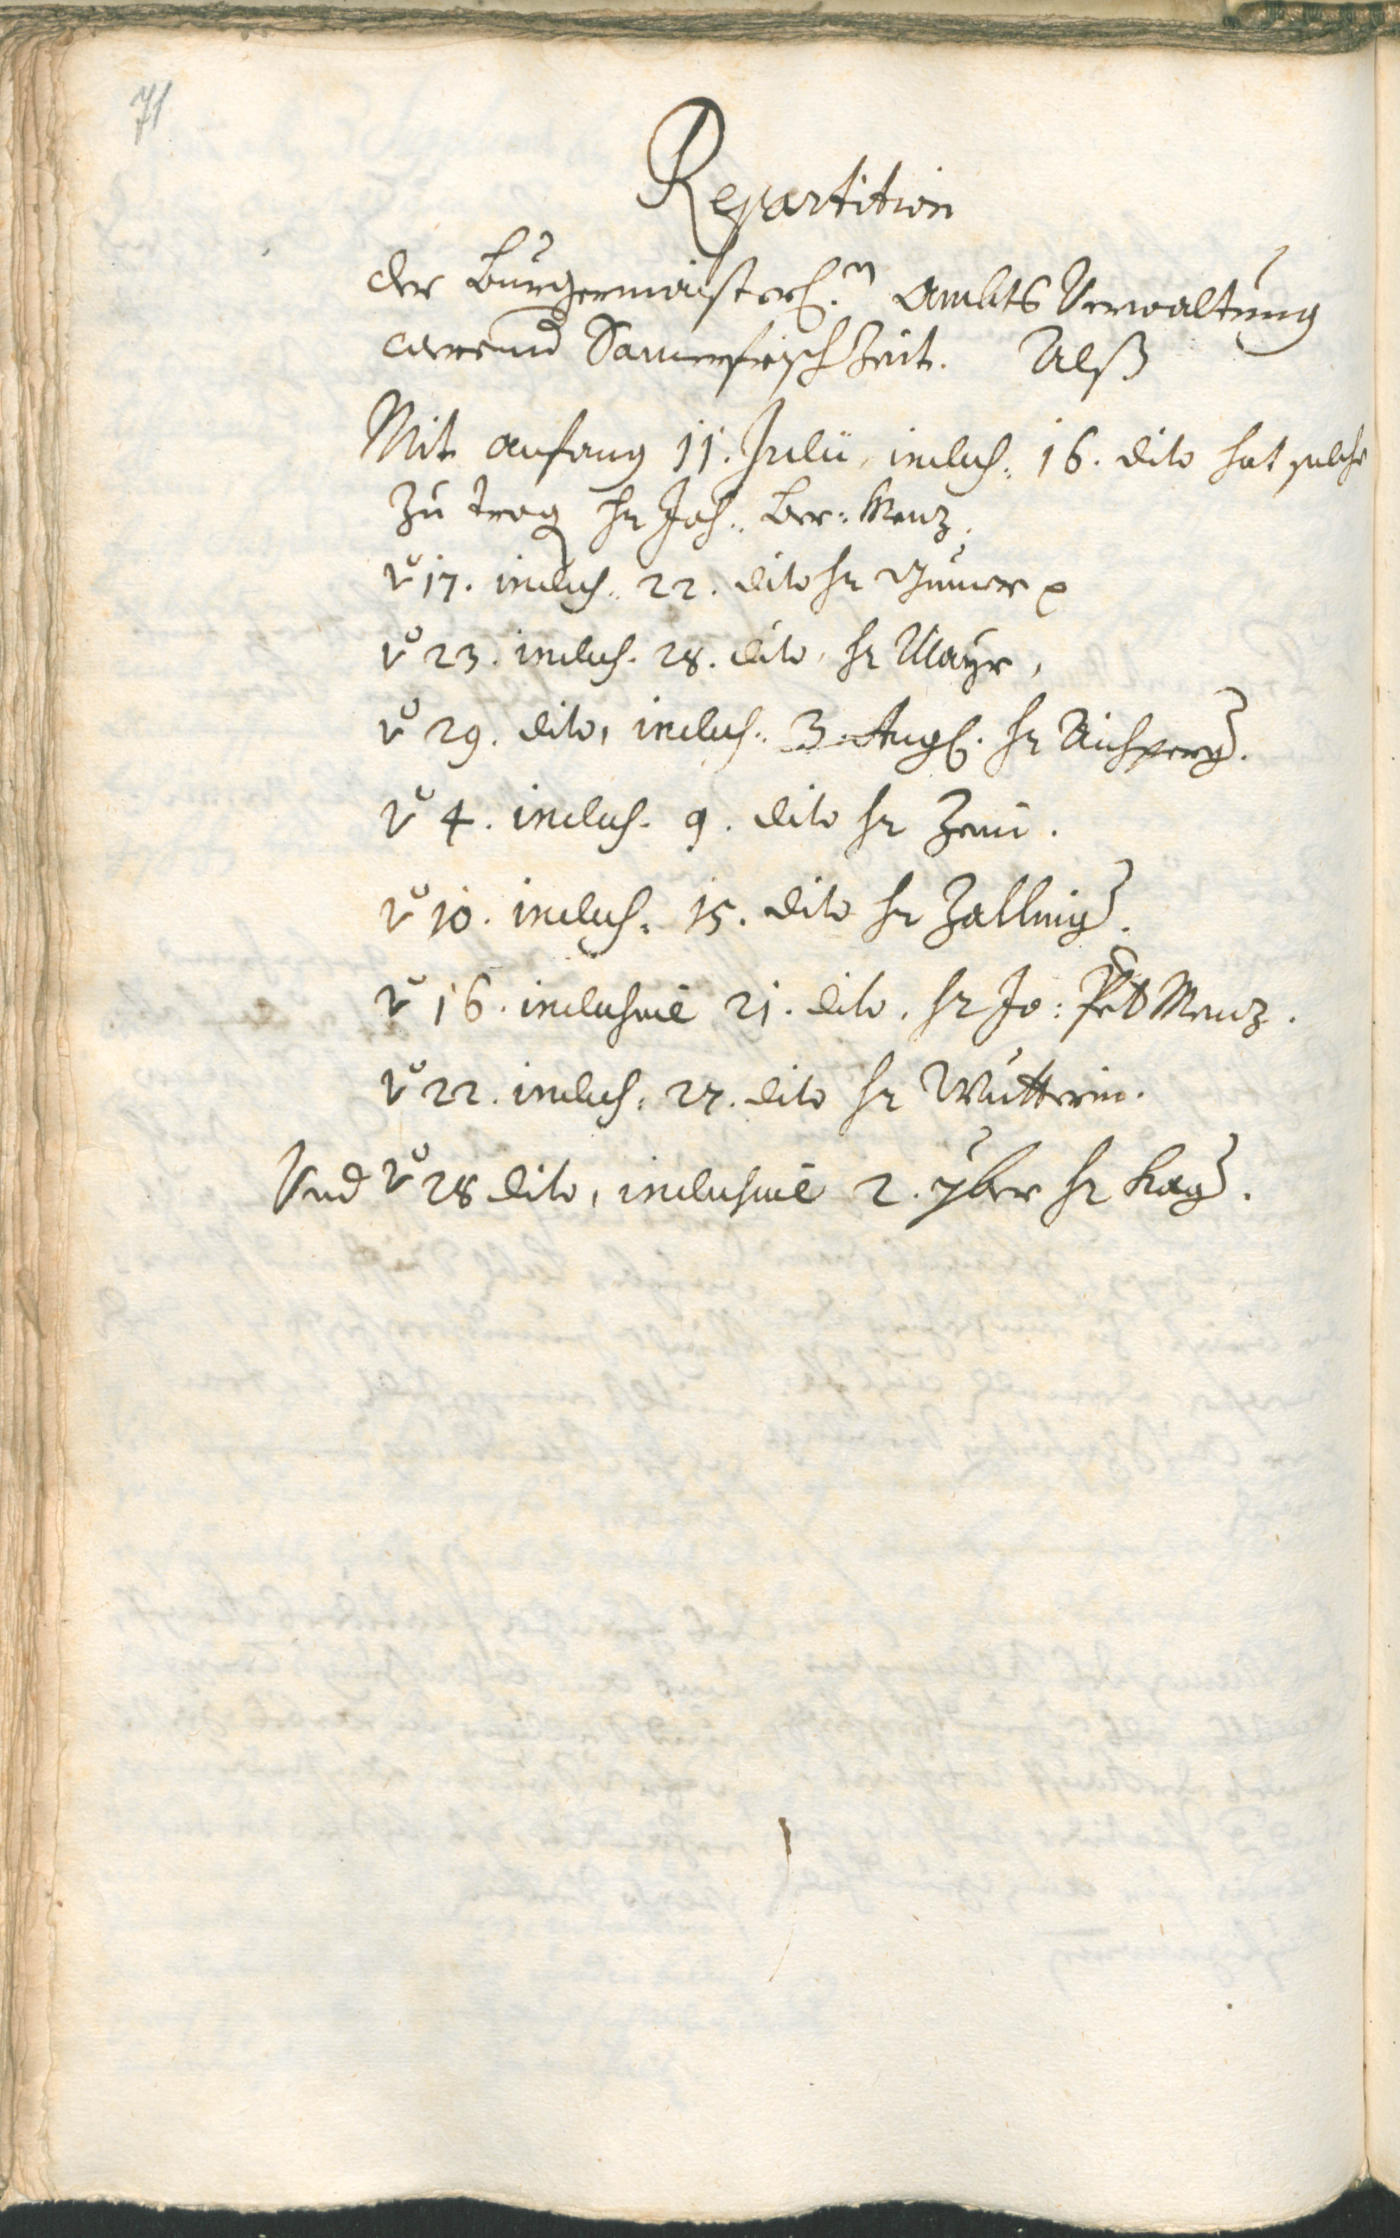 71
Repartition
der Burgermaisterl:n Ambts Verwaltung
werend Sammerfrisch Zeit. Alß
Mit anfang 11. Julii, inclus: 16. dito hat solche
zu trag hr Joh: Ber: Menz.
v 17. inclus: 22. dito hr
v 23. inclus. 28. dito, hr Mayr,
v 29. dito, inclus: 3. Aug. hr Aichperg.
v 4. inclus. 9. dito hr Zeni.
v 10. inclus. 15. dito hr Zalling.
v 16. inclusivè 21. dito. hr Jo: Pet Menz.
v 22. inclus: 27. dito hr Wutterin.
Und v 28 dito, inclusivè 2. 7ber hr